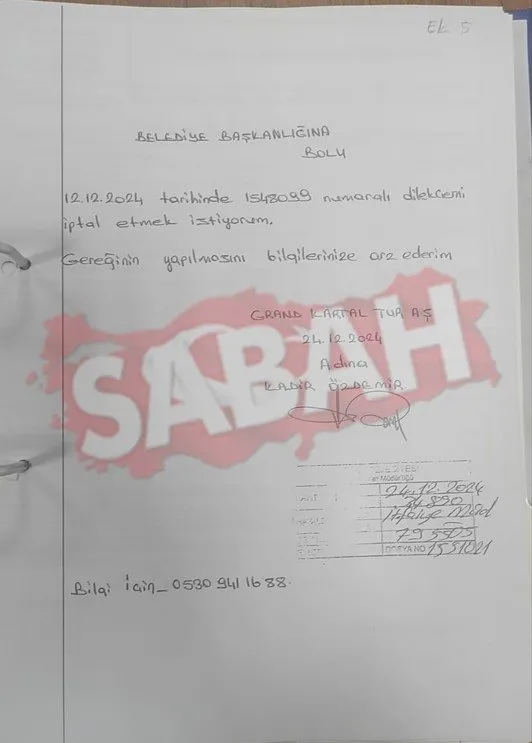 Ek 5
BELEDİYE BAŞKANLIĞINA
BOLU
12.12.2024 tarihinde 1548099 numaralı dilekcemi
iptal etmek istiyorum.
Gereğinin yapılmasını bilgilerinize arz ederim
GRAND KARTAL TUR A.Ş
24.12.2024
Adına
KADİR ÖZDEMİR
SABAH
24.12.2024
34.890
İtfaiye Müd
79505
DOSYA NO 1551021
Bilgi İçin_ 0530 941 16 88.